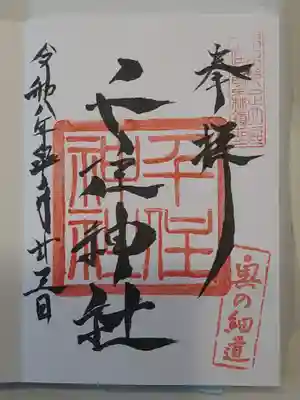 奉拝
千住神社
千住
神社
奥の細道
令和 年 月廿 日